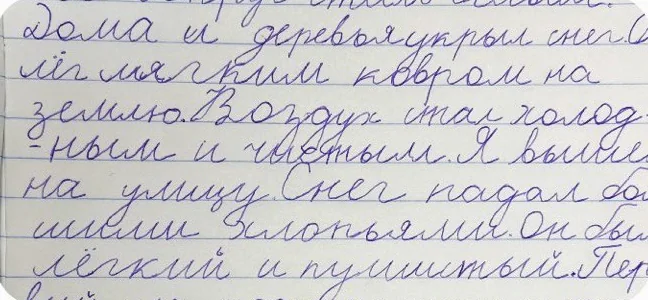 стало белым.
Дома и деревья укрыл снег. О
лёг мягким ковром на
землю. Воздух стал холод-
-ным и чистым. Я выше
на улицу. Снег падал бол
шими хлопьями. Он был
лёгкий и пушистый. Пер